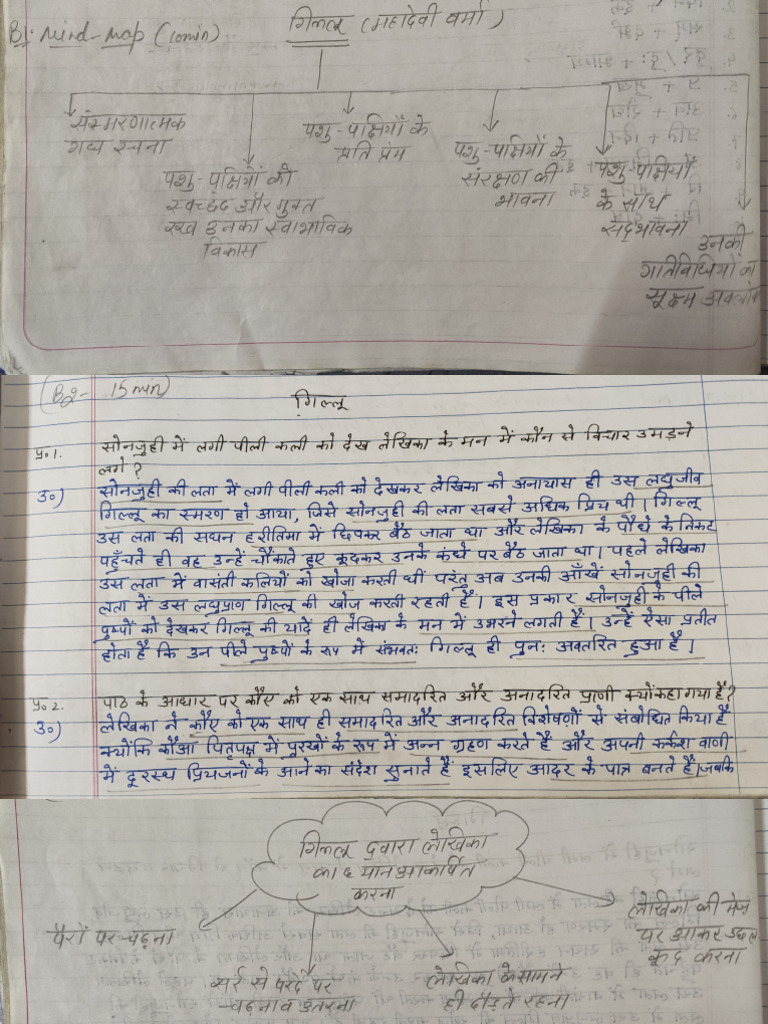 B1: Mind-map (10min)
गिल्लू (महादेवी वर्मा)
संस्मरणात्मक
गद्य रचना
पशु-पक्षियों को
स्वच्छंद और मुक्त
रख उनका स्वाभाविक
विकास
पशु-पक्षियों के
प्रति प्रेम
पशु-पक्षियों के
संरक्षण की
भावना
पशु-पक्षियों
के साथ
सद्भावना
उनकी
गतिविधियों का
सूक्ष्म
(B2- 15min)
गिल्लू
प्र० 1. सोनजुही में लगी पीली कली को देख लेखिका के मन में कौन से विचार उमड़ने
लगे ?
उ०) सोनजुही की लता में लगी पीली कली को देखकर लेखिका को अनायास ही उस लघुजीव
गिल्लू का स्मरण हो आया, जिसे सोनजुही की लता सबसे अधिक प्रिय थी। गिल्लू
उस लता की सघन हरीतिमा में छिपकर बैठ जाता था और लेखिका के पौधे के निकट
पहुँचते ही वह उन्हें चौंकाते हुए कूदकर उनके कंधे पर बैठ जाता था। पहले लेखिका
उस लता में वासंती कलियों को खोजा करती थीं परंतु अब उनकी आँखें सोनजुही की
लता में उस लघुप्राण गिल्लू की खोज करती रहती हैं। इस प्रकार सोनजुही के पीले
पुष्पों को देखकर गिल्लू की यादें ही लेखिका के मन में उभरने लगती हैं। उन्हें ऐसा प्रतीत
होता है कि उन पीले पुष्पों के रूप में संभवतः गिल्लू ही पुनः अवतरित हुआ है।
प्र० 2. पाठ के आधार पर कौए को एक साथ समादरित और अनादरित प्राणी क्यों कहा गया है?
उ०) लेखिका ने कौए को एक साथ ही समादरित और अनादरित विशेषणों से संबोधित किया है
क्योंकि कौआ पितृपक्ष में पुरखों के रूप में अन्न ग्रहण करते हैं और अपनी कर्कश वाणी
में दूरस्थ प्रियजनों के आने का संदेश सुनाते हैं इसलिए आदर के पात्र बनते हैं। जबकि
गिल्लू द्वारा लेखिका
का ध्यान आकर्षित
करना
पैरों पर चढ़ना
सर्र से परदे पर
चढ़ना व उतरना
लेखिका के सामने
ही दौड़ते रहना
लेखिका की मेज
पर आकर उछल
कूद करना